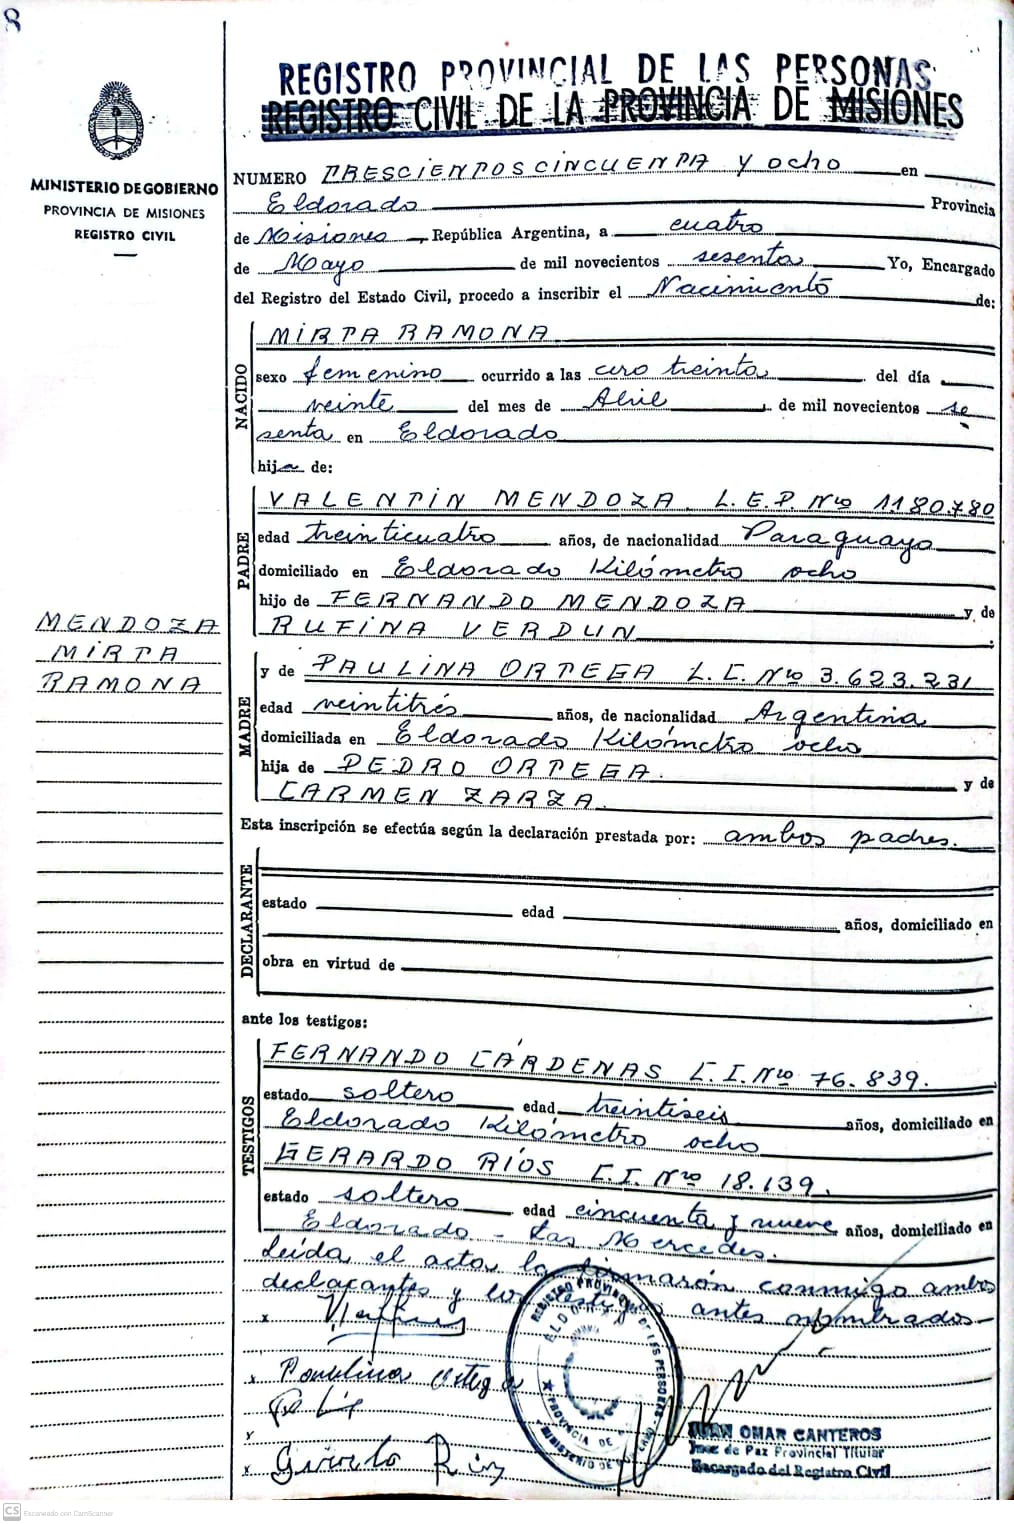 8
REGISTRO PROVINCIAL DE LAS PERSONAS
REGISTRO CIVIL DE LA PROVINCIA DE MISIONES
MINISTERIO DE GOBIERNO
PROVINCIA DE MISIONES
REGISTRO CIVIL
NUMERO TRESCIENTOS CINCUENTA Y OCHO en
Eldorado Provincia
de Misiones, República Argentina, a cuatro
de Mayo de mil novecientos sesenta Yo, Encargado
del Registro del Estado Civil, procedo a inscribir el Nacimiento de:
NACIDO
MIRTA RAMONA
sexo femenino ocurrido a las cero treinta del día
veinte del mes de Abril de mil novecientos se
senta en Eldorado
hija de:
PADRE
VALENTIN MENDOZA L.E.P. Nº 1180.780
edad treinticuatro años, de nacionalidad Paraguayo
domiciliado en Eldorado Kilómetro ocho
hijo de FERNANDO MENDOZA y de
RUFINA VERDUN
MENDOZA
MIRTA
RAMONA
MADRE
y de PAULINA ORTEGA L.C. Nº 3.623.231
edad veintitrés años, de nacionalidad Argentina
domiciliada en Eldorado Kilómetro ocho
hija de PEDRO ORTEGA. y de
CARMEN ZARZA.
Esta inscripción se efectúa según la declaración prestada por: ambos padres.
DECLARANTE
estado edad años, domiciliado en
obra en virtud de
ante los testigos:
TESTIGOS
FERNANDO CÁRDENAS C.I. Nº 76.839.
estado soltero edad treintiseis años, domiciliado en
Eldorado Kilómetro ocho
GERARDO RÍOS C.I. Nº 18.139.
estado soltero edad cincuenta y nueve años, domiciliado en
Eldorado - Las Mercedes.
Leída el acta la firmarón conmigo ambos
declarantes y los testigos antes nombrados-
x
x Paulina Ortega
x
REGISTRO PROVINCIAL DE LAS PERSONAS
ELDORADO
PROVINCIA DE
MINISTERIO DE
JUAN OMAR CANTEROS
Juez de Paz Provincial Titular
Encargado del Registro Civil
CS Escaneado con CamScanner